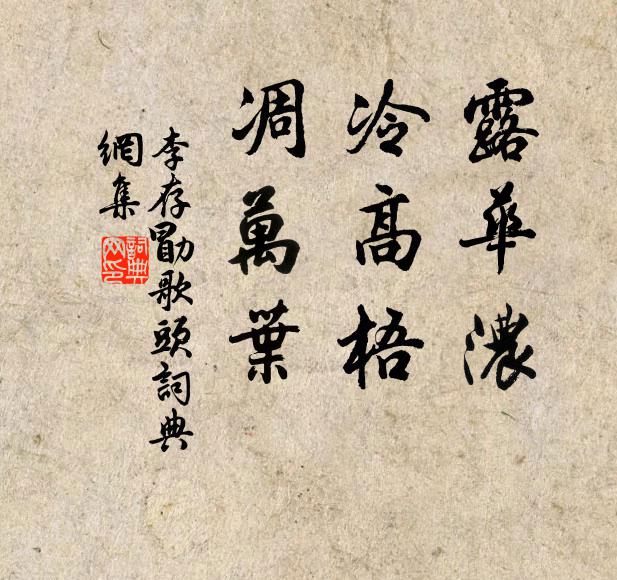 露華濃
冷高梧
凋萬葉
李存勖歌頭詞典
網集
詞典
网印